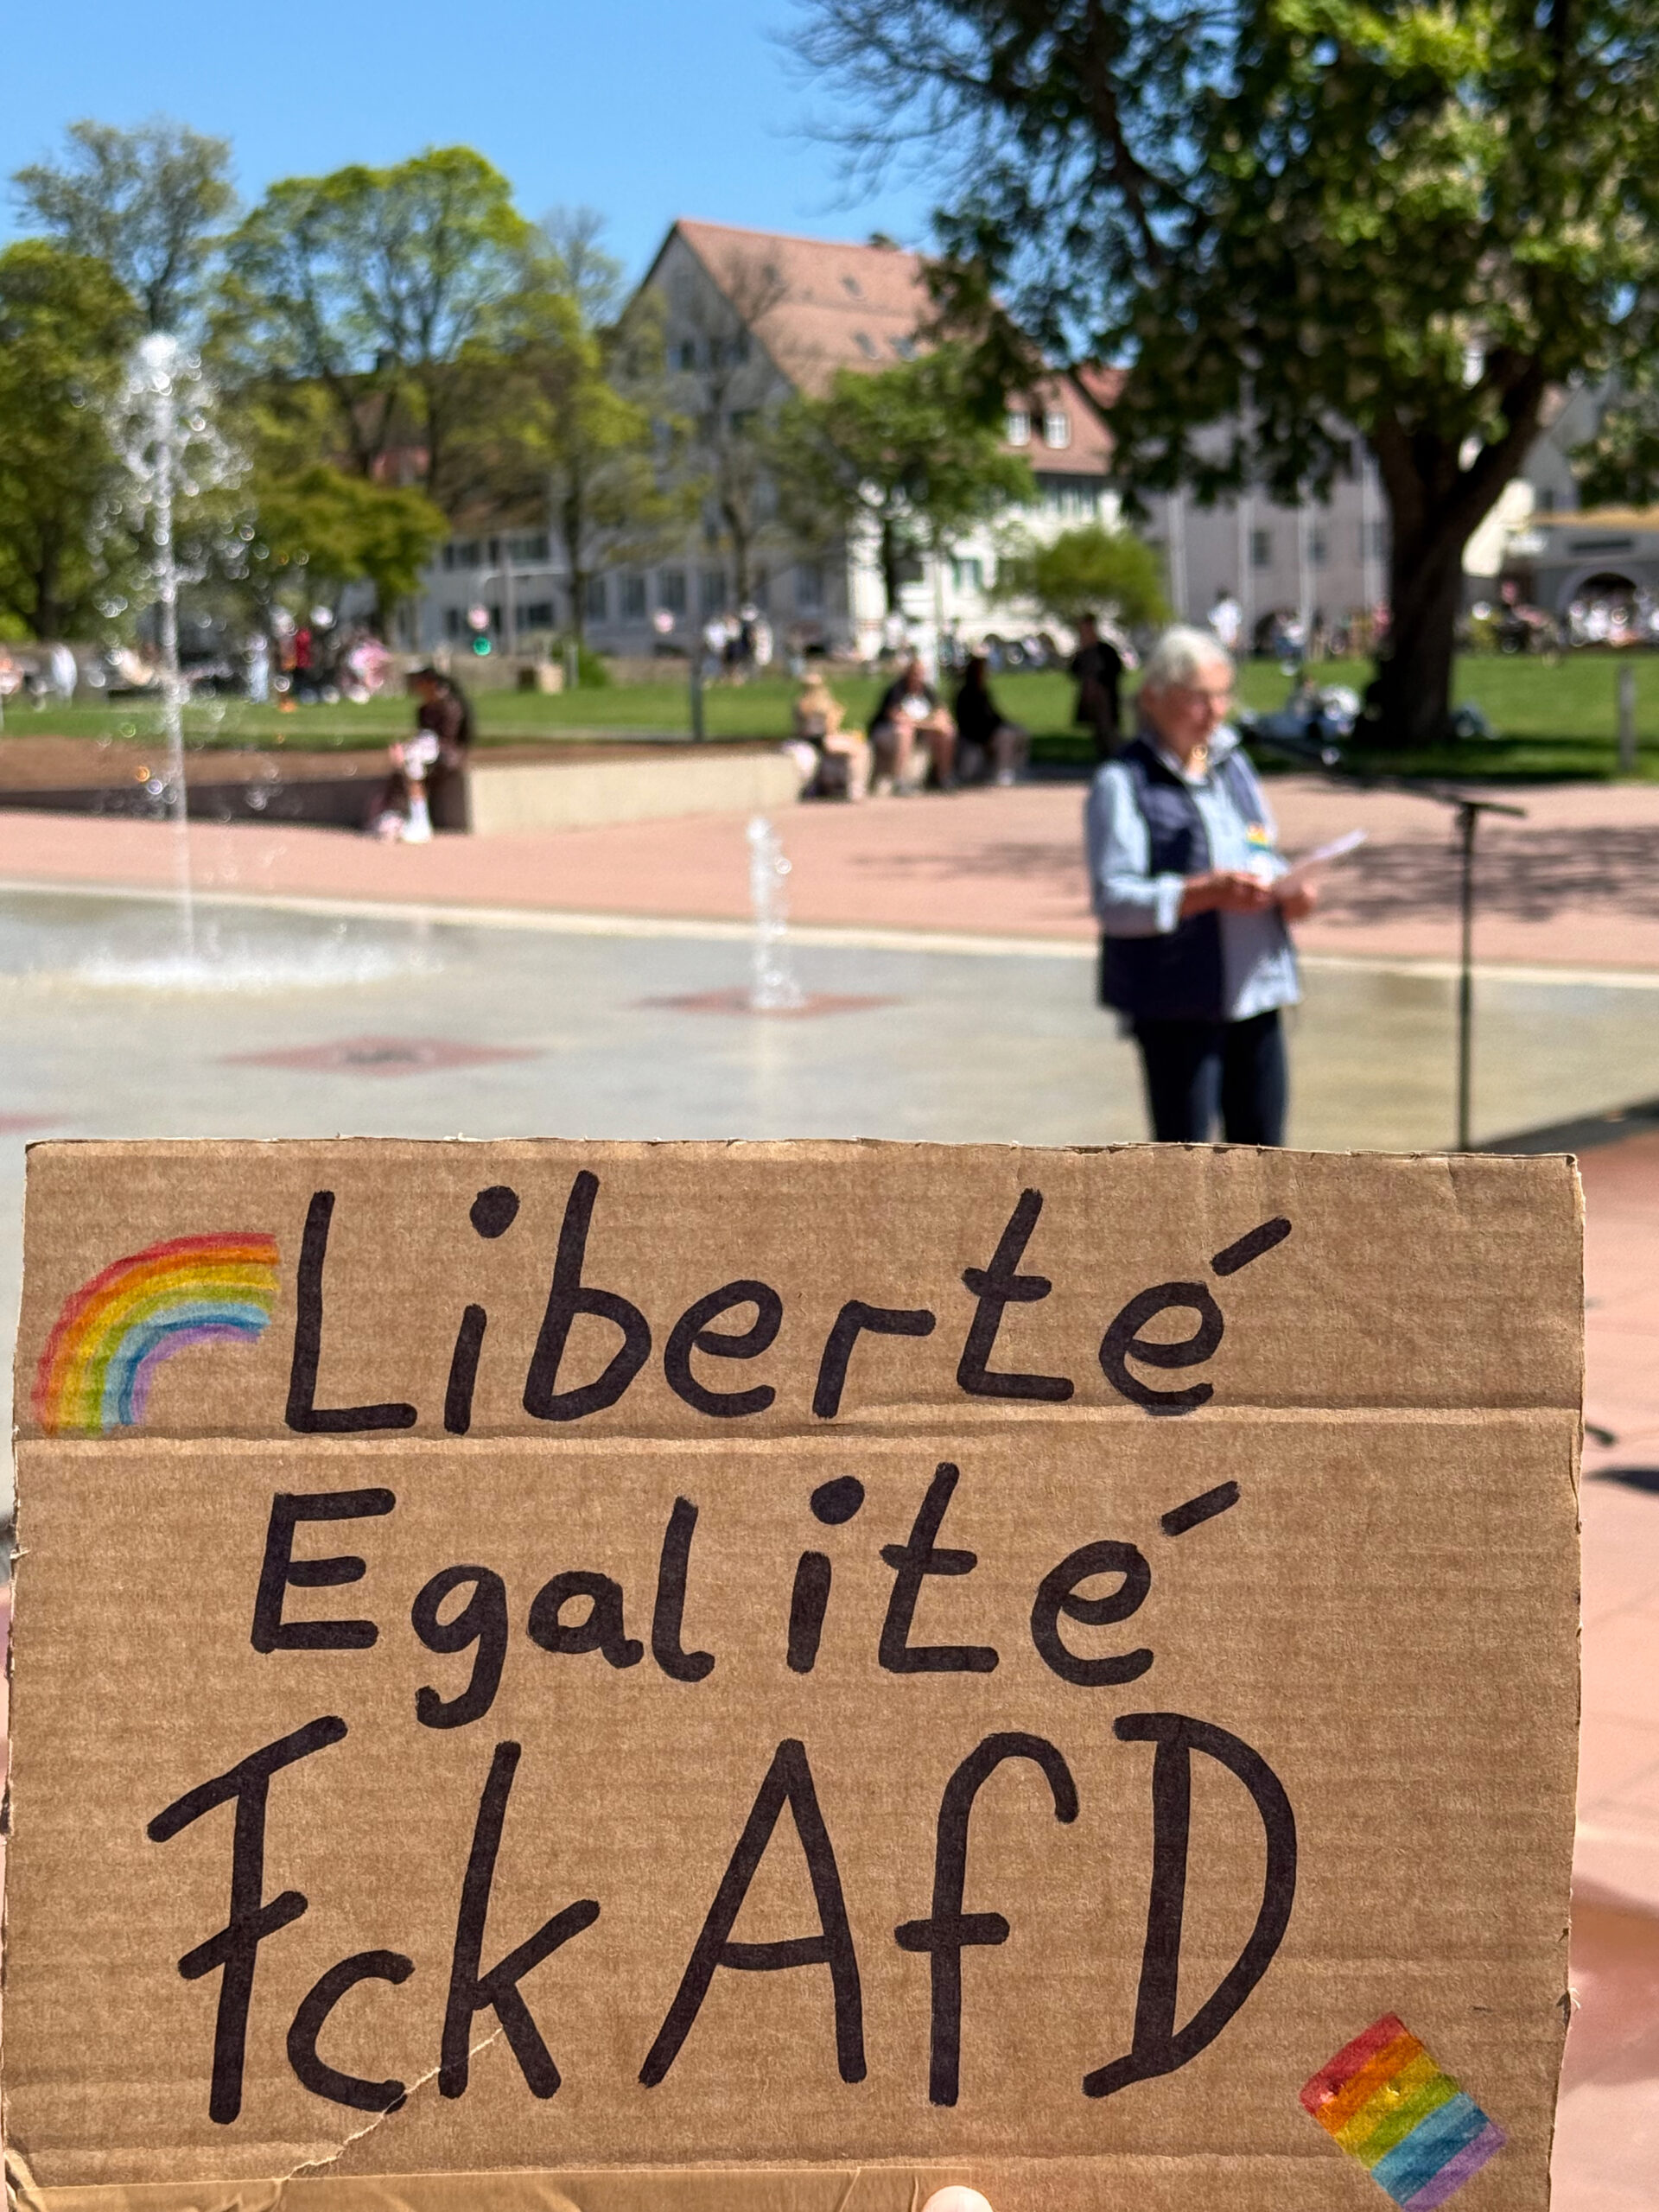 Liberté
Egalité
Fck AfD